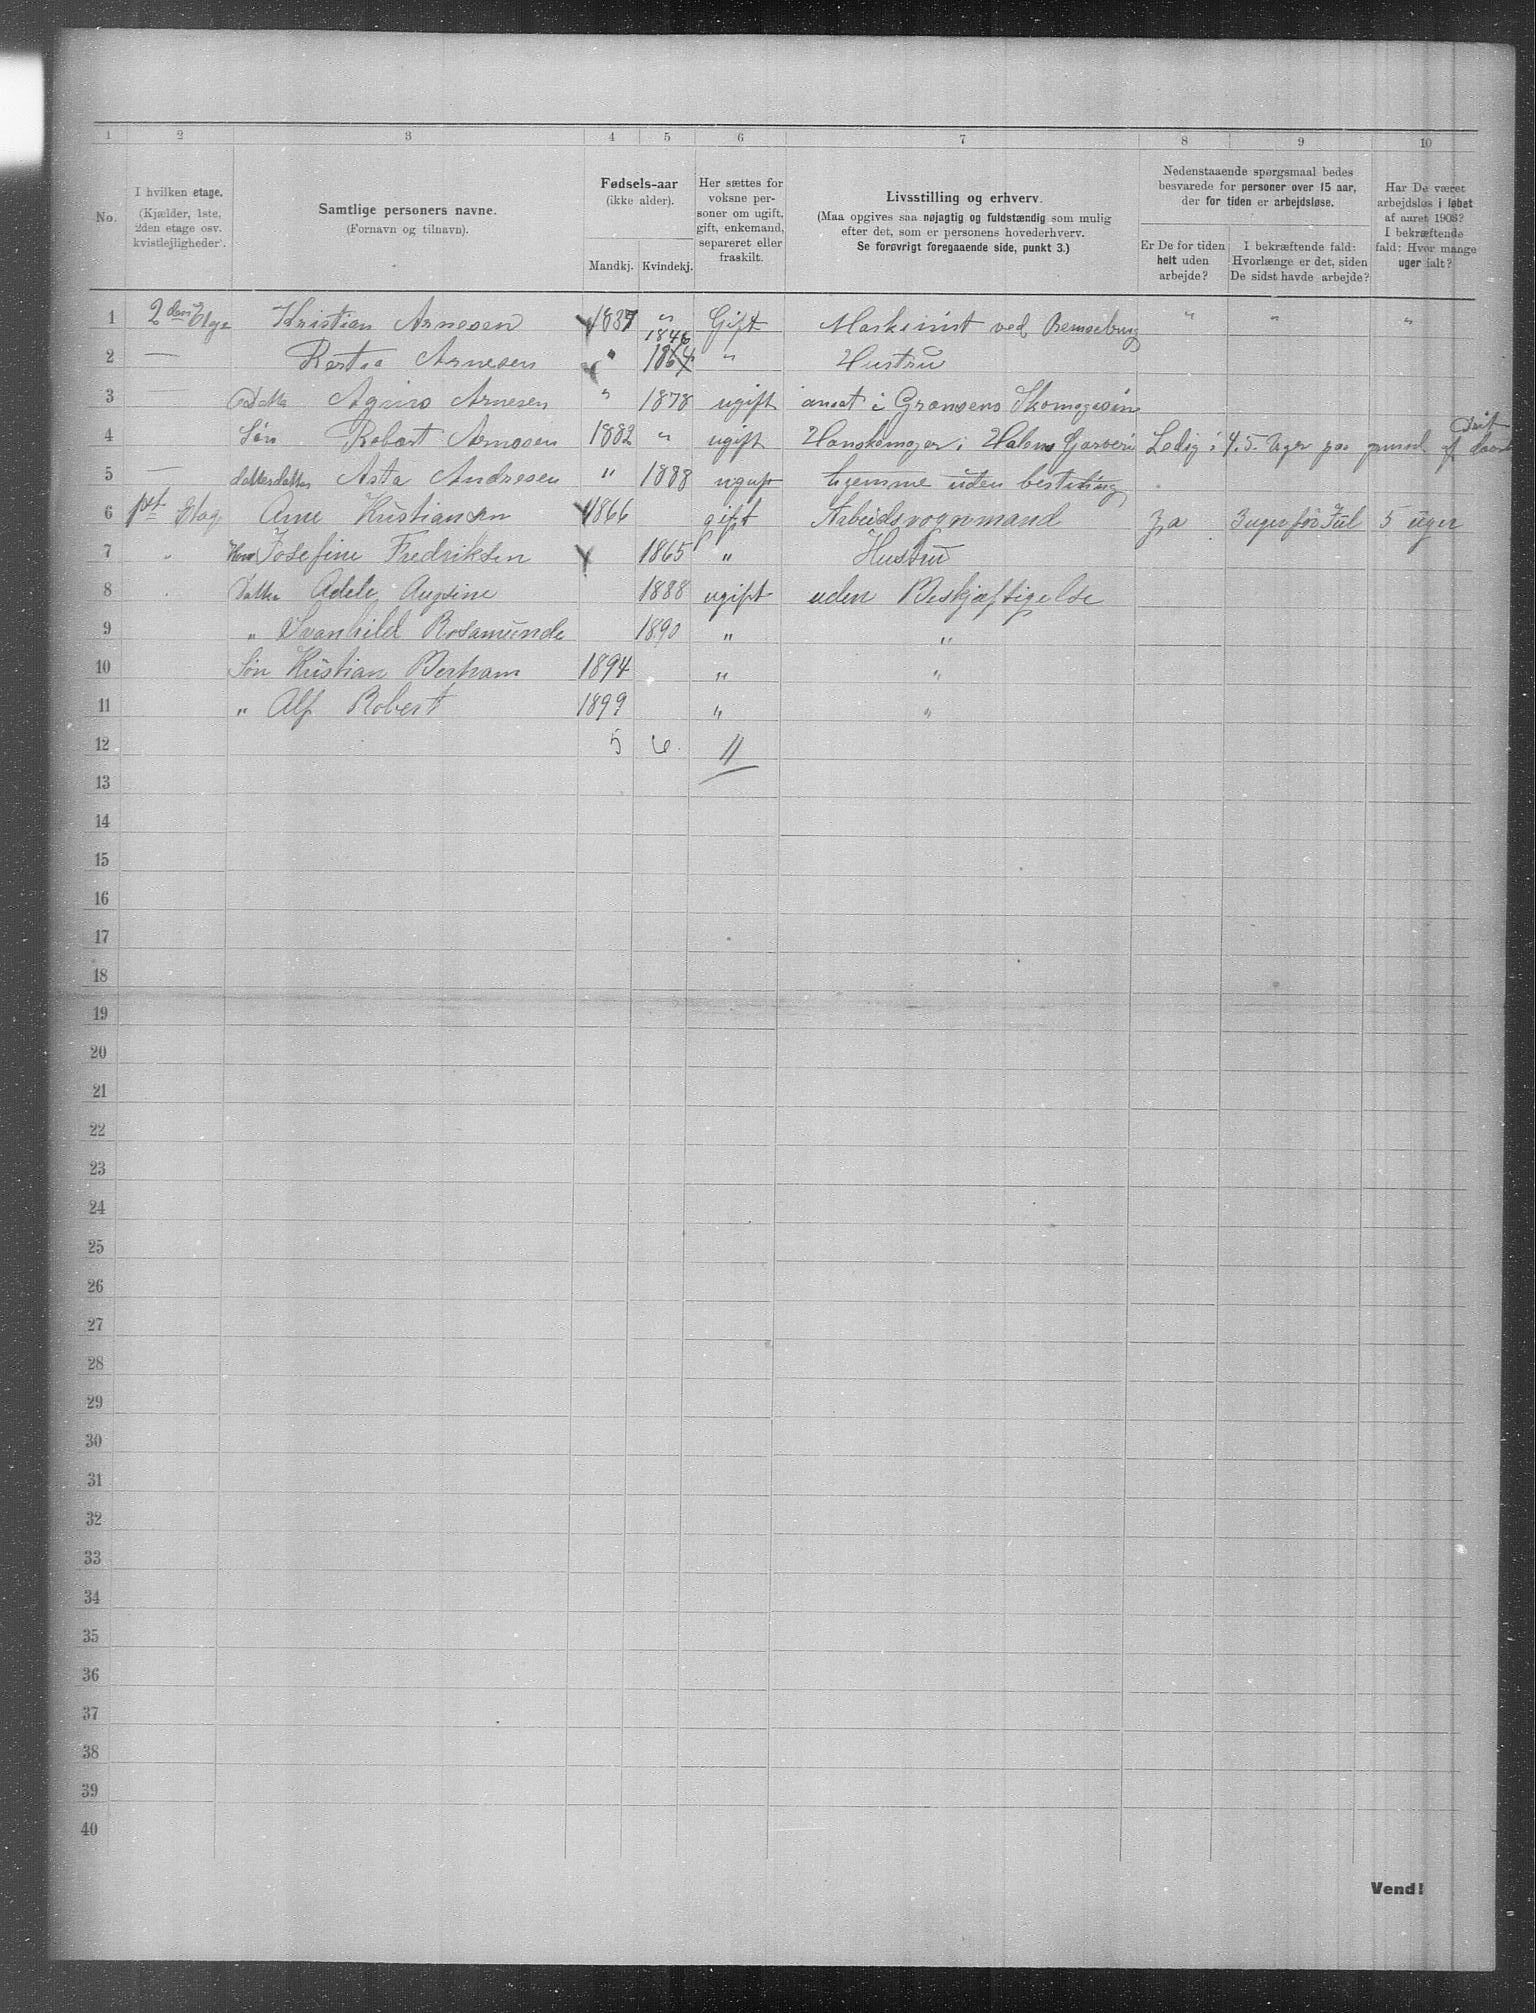 1 2 3 4 5 6 7 8 9 10
No.
I hvilken etage.
(Kjælder, 1ste,
2den etage osv.
kvistlejligheder).
Samtlige personers navne.
(Fornavn og tilnavn).
Fødsels-aar
(ikke alder).
Mandkj. Kvindekj.
Her sættes for
voksne per-
soner om ugift,
gift, enkemand,
separeret eller
fraskilt.
Livsstilling og erhverv.
(Maa opgives saa nøjagtig og fuldstændig som mulig
efter det, som er personens hovederhverv.
Se forøvrigt foregaaende side, punkt 3.)
Nedenstaaende spørgsmaal bedes
besvarede for personer over 15 aar,
der for tiden er arbejdsløse.
Er De for tiden
helt uden
arbejde?
I bekræftende fald:
Hvorlænge er det, siden
De sidst havde arbejde?
Har De været
arbejdsløs i løbet
af aaret 1903?
I bekræftende
fald: Hvor mange
uger ialt?
1 2den Etage Kristian Arnesen 1837 " Gift Maskinist ved " " "
1846
2 — Arnesen " 1864 " Hustru
3 — Datte Arnesen " 1878 ugift ansat i Grænsens Skomagasin
4 Søn Robert Arnesen 1882 " ugift Hanskemager i Garveri Ledig i 4.5. Uger paa grund af
5 — datterdatter Asta Andresen " 1888 ugift hjemme uden bestilling
6 1st Etag. Arne Kristiansen 1866 gift Arbeidsvognmand Ja 3 uger før Jul 5 uger
7 " Josefine Fredriksen 1865 " Hustru
8 Datter Adele 1888 ugift uden Beskjæftigelse
9 " Svanhild Rosamunde 1890 " "
10 Søn Kristian Bertram 1894 " "
11 " Alf Robert 1899 " "
12 5 6. 11
13
14
15
16
17
18
19
20
21
22
23
24
25
26
27
28
29
30
31
32
33
34
35
36
37
38
39
40
Vend!